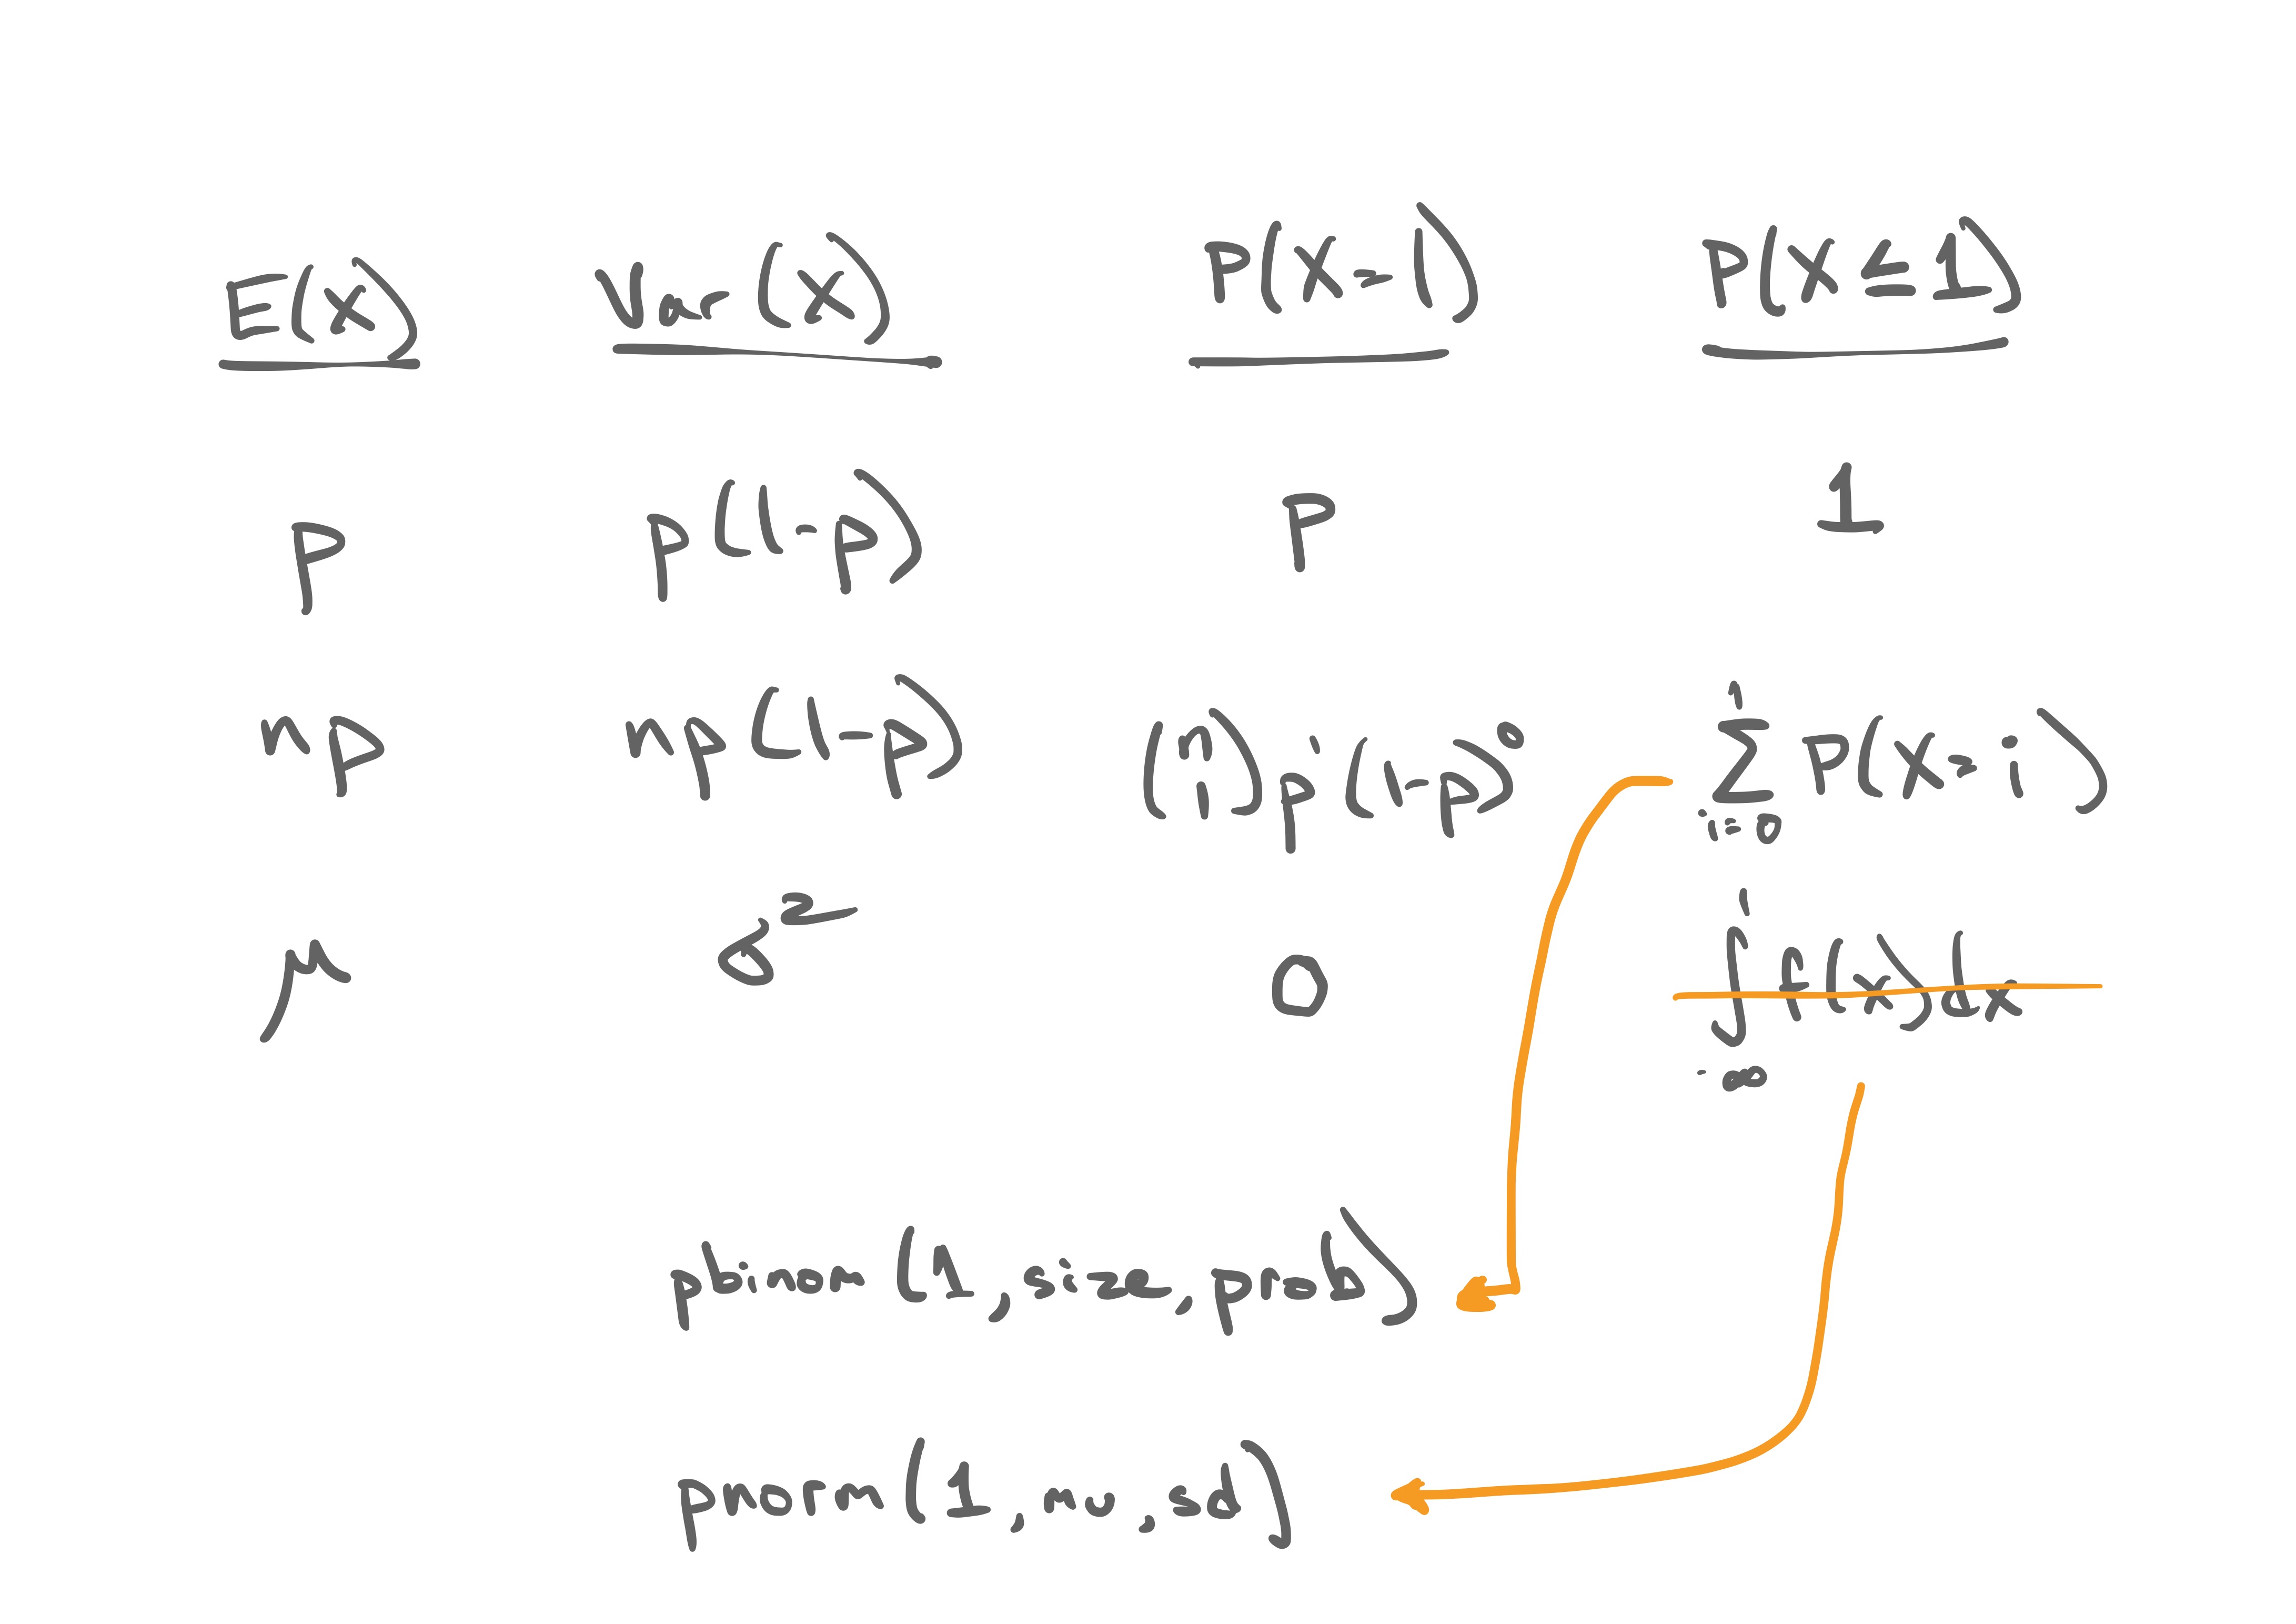 E(X) Var(X) P(X=1) P(X≤1)
p p(1-p) p 1
np np(1-p) (n 1)p¹(1-p)⁰ ∑_{i=0}^{1} P(X=i)
μ σ² 0 ∫_{-∞}^{1} f(x)dx
pbinom(1, size, prob)
pnorm(1, mu, sd)